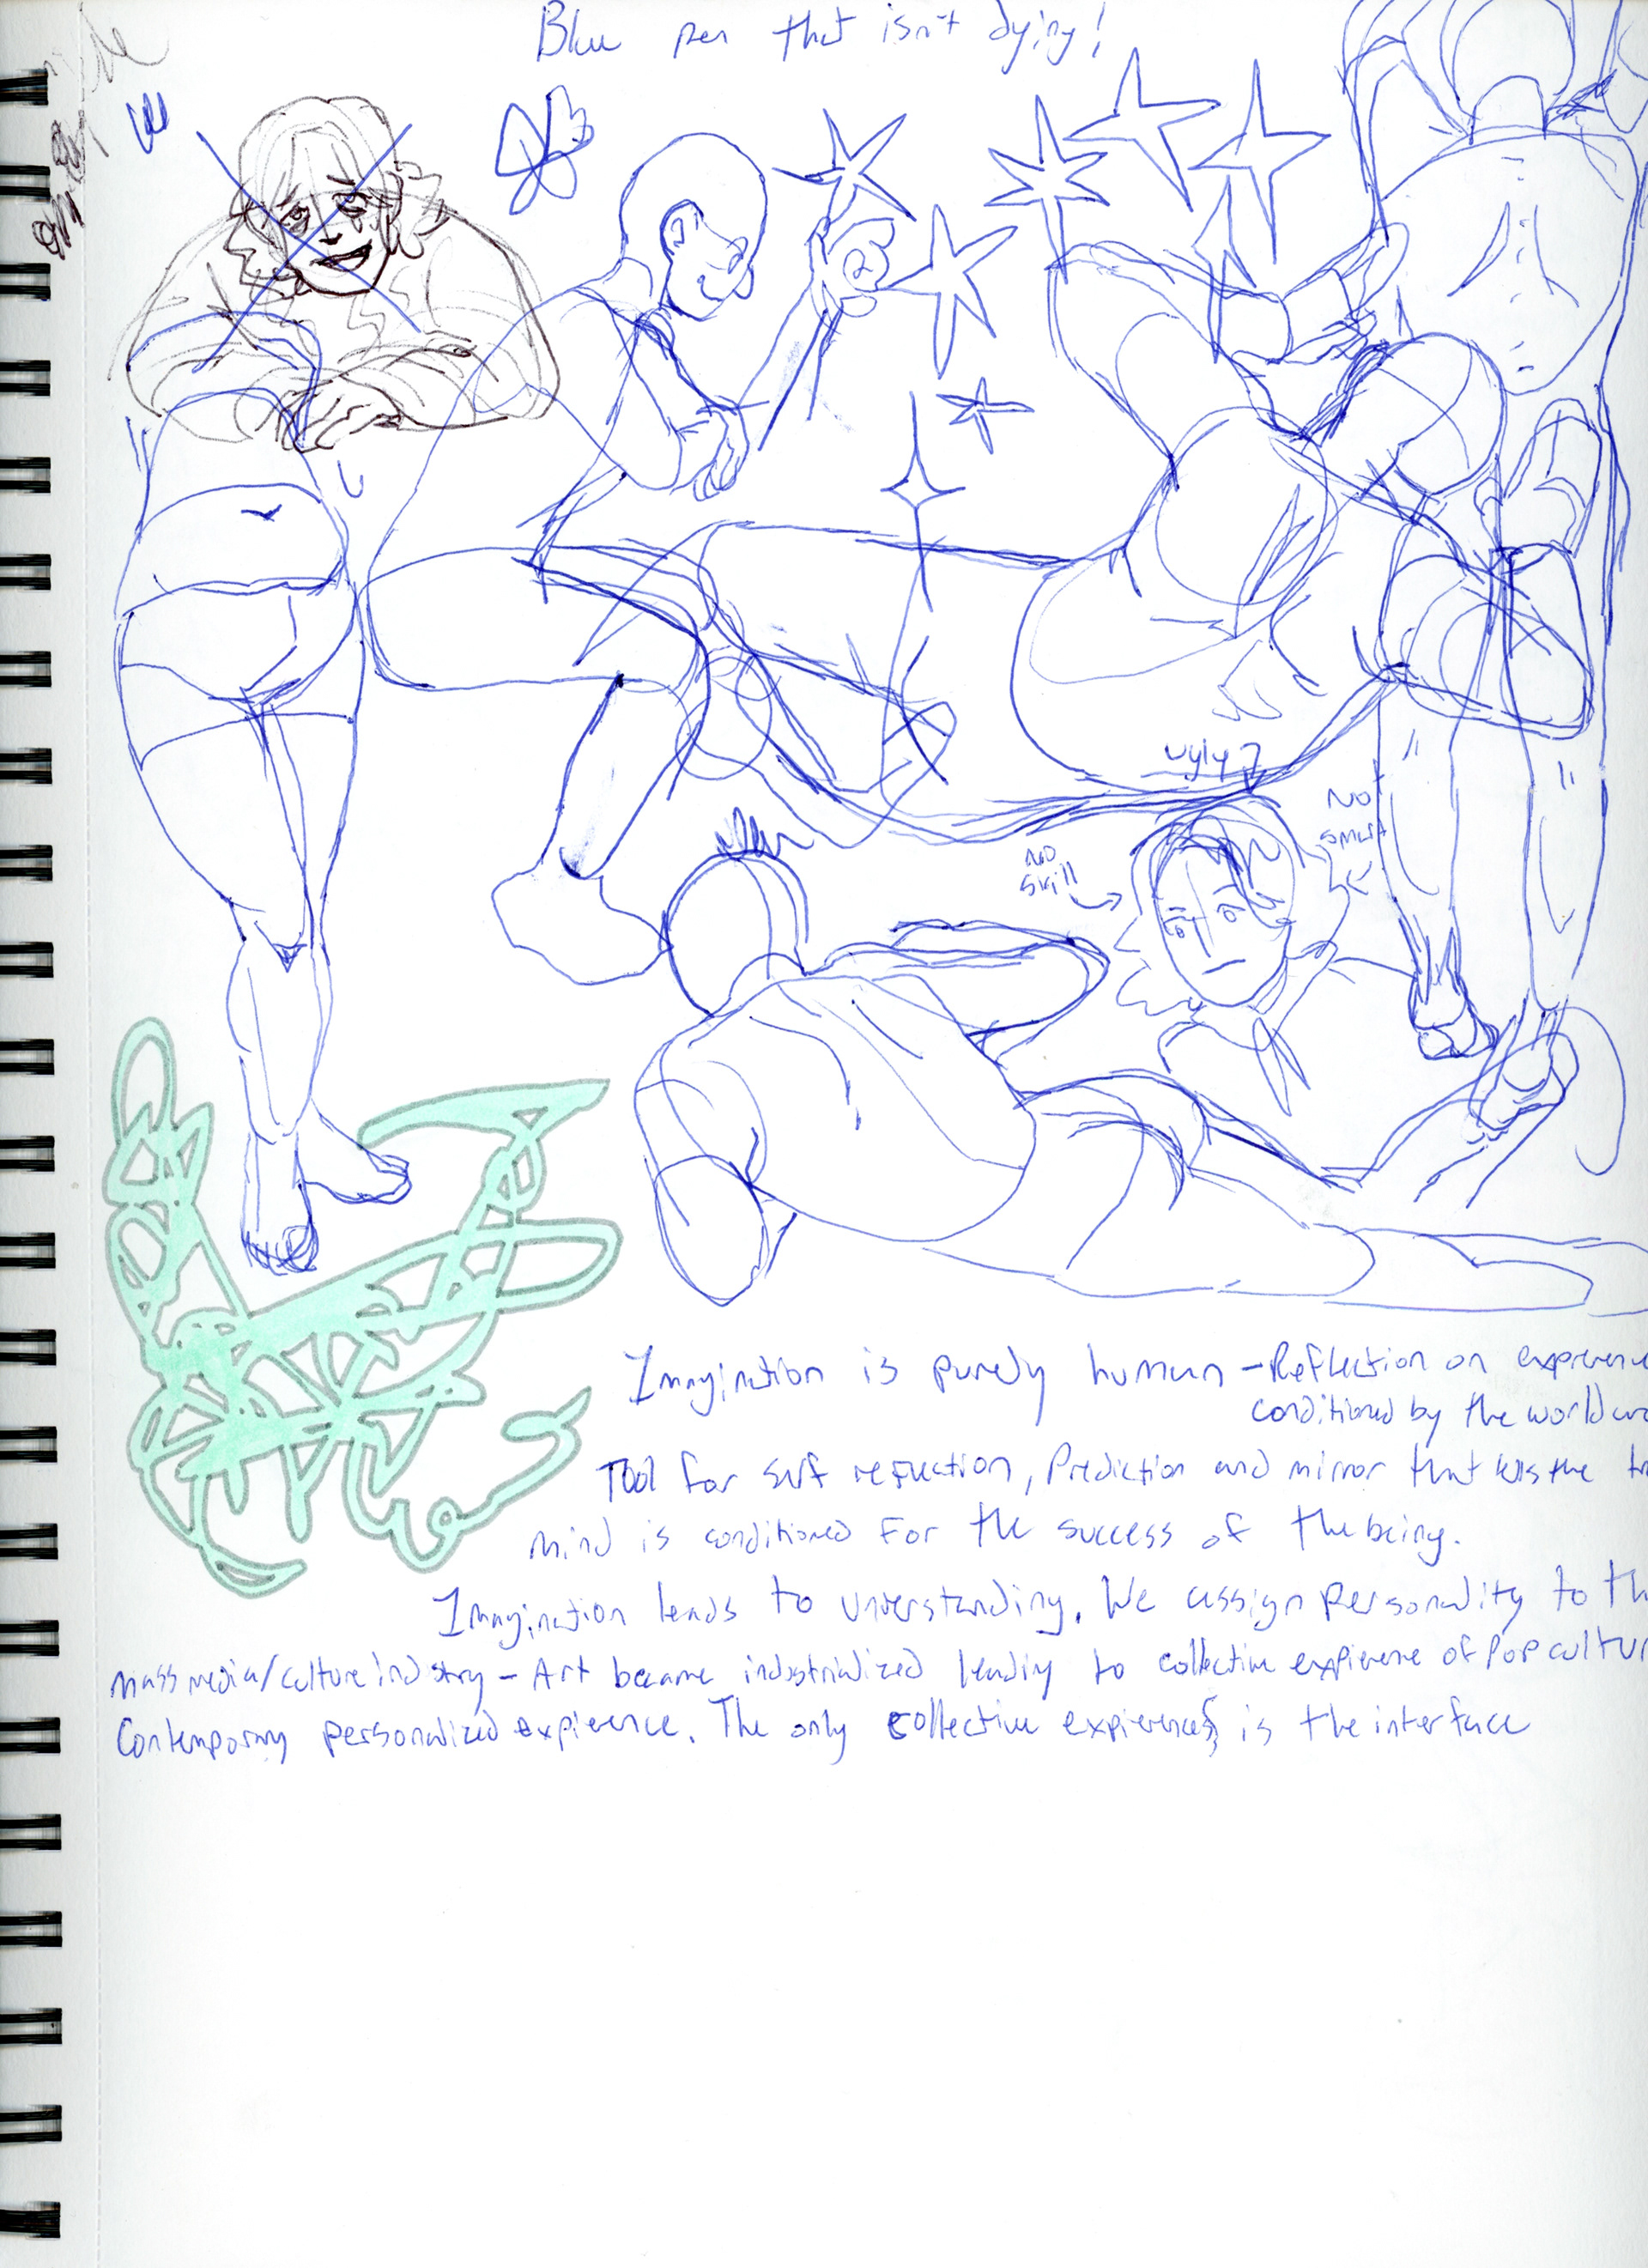 Blue pen that isn't dying!
ugly?
No
smart
no
skill
Imagination is purely human - Reflection on
conditioned by the world
Tool for self reflection, Prediction and mirror that the
mind is conditioned for the success of the being.
Imagination leads to understanding. We assign personality to
Mass media/culture industry - Art became industrialized leading to collective expierene of Pop
Contemporary personalized expierence. The only collective expierences is the interface